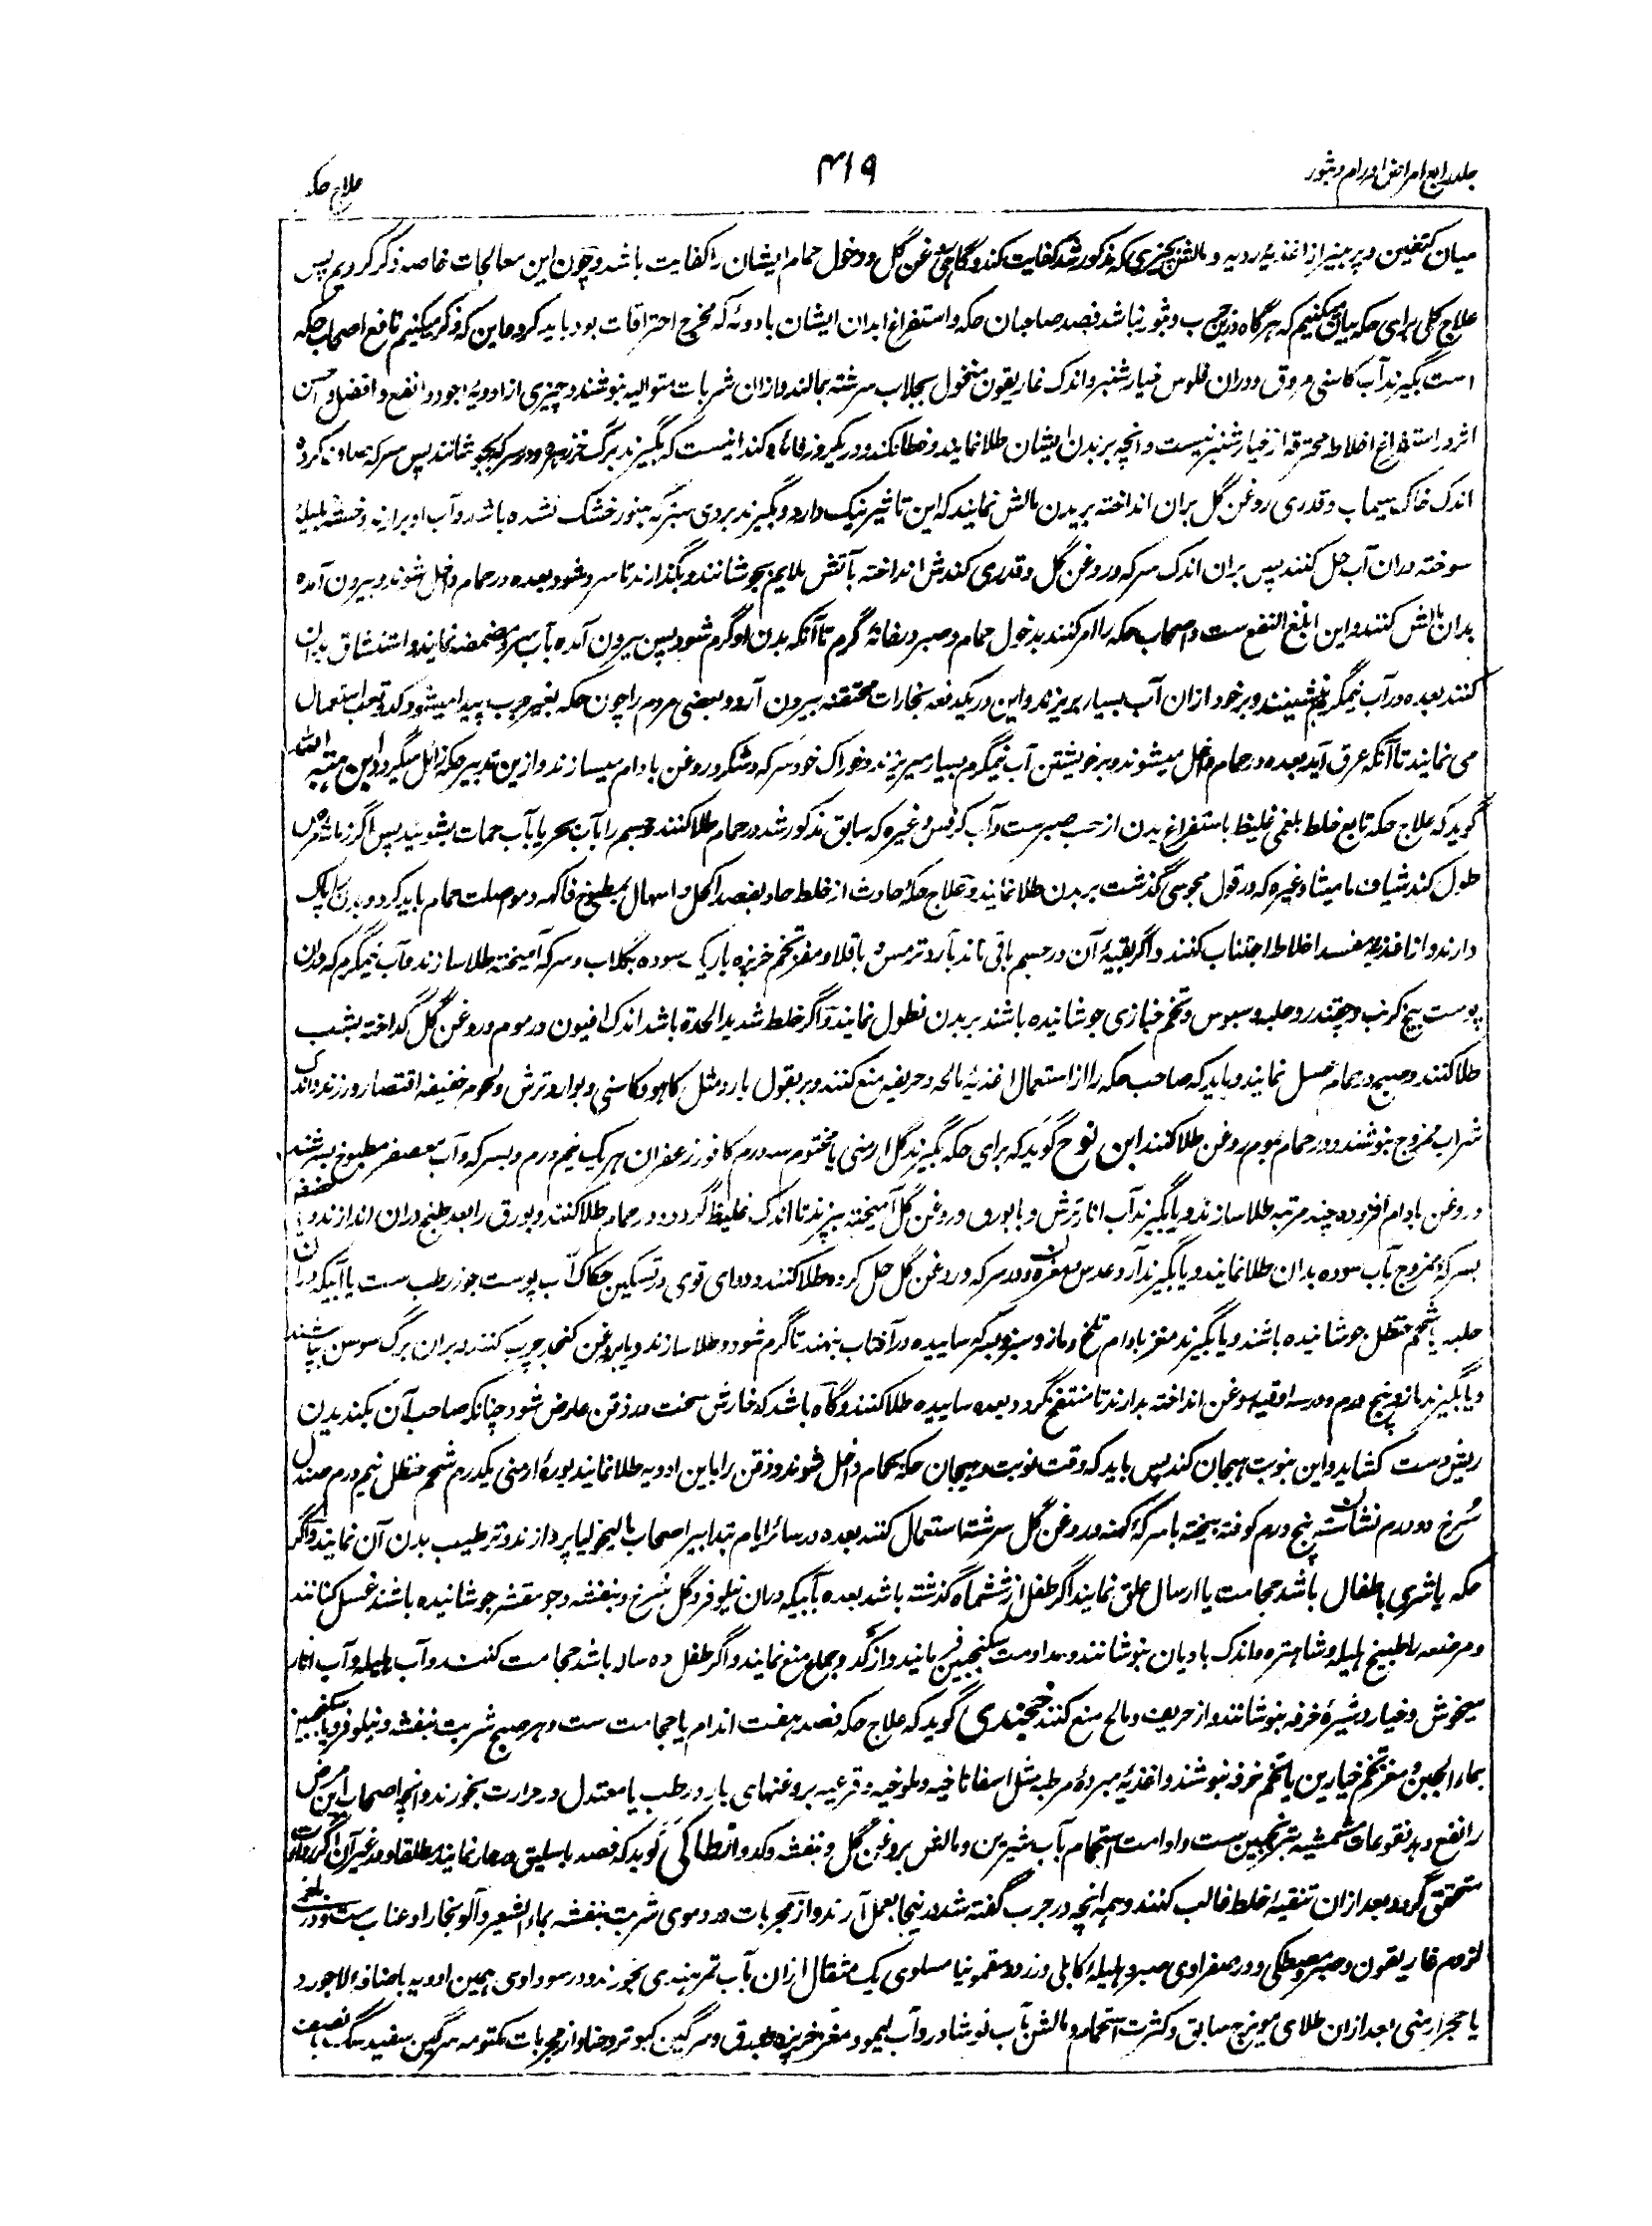 جلد رابع امراض اورام و بثور
۴۱۹
علاج حکه
میان کتفین و پرهیز از اغذیهٔ ردیه و مالش بچیزی که مذکور شد کفایت کند و گاهی روغن گل و دخول حمام ایشان را کفایت باشد و چون این معالجات خاصه ذکر کردیم پس
علاج کلی برای حکه بیان میکنیم که هرگاه درین جرب و بثور نباشد فصد صاحبان حکه و استفراغ ابدان ایشان بادویه که مخرج احتراقات بود باید کرد و این که ذکر میکنیم نافع اصحاب حکه
است بگیرند آب کاسنی مروق و دران فلوس خیارشنبر و اندک غاریقون منخول بجلاب سرشته بمالند و ازان شربات متوالیه بنوشند و چیزی از ادویهٔ اجود و انفع و افضل و احسن
اثر در استفراغ اخلاط محترقه از خیارشنبر نیست و آنچه بر بدن ایشان طلا نمایند و خطا نکند و در یکروز فائده کند اینست که بگیرند برگ خرزهره و در سرکه بجوشانند پس سرکه صاف کرده
اندک خاک سیماب و قدری روغن گل بران انداخته بر بدن مالش نمایند که این تاثیر نیک دارد و بگیرند بردی سبز که هنوز خشک نشده باشد و آب او برارند و خسته هلیله
سوخته دران آب حل کنند پس بران اندک سرکه و روغن گل و قدری کندش انداخته بآتش ملایم بجوشانند و بگذارند تا سرد شود بعده در حمام داخل شوند و بیرون آمده
بدان مالش کنند و این ابلغ النفع ست و اصحاب حکه را امر کنند بدخول حمام و صبر در خانهٔ گرم تا آنکه بدن او گرم شود پس بیرون آمده بآب سرد مضمضه نمایند و استنشاق بدان
کنند بعده در آب نیمگرم بنشینند و بر خود ازان آب بسیار بریزند و این در یکدفعه بخارات محتقنه بیرون آرد و بعضی مردم را چون حکه بغیر جرب پیدا میشود کد و تعب استعمال
می نمایند تا آنکه عرق آید بعده در حمام داخل میشوند و بر خویشتن آب نیمگرم بسیار میریزند و خوراک خود سرکه و شکر و روغن بادام میسازند و ازین تدبیر حکه زائل میگردد ابن هبة الله
گوید که علاج حکه تابع خلط بلغمی غلیظ باستفراغ بدن از حب صبرست و آب کرفس و غیره که سابق مذکور شد در حمام طلا کنند و جسم را بآب بحر یا بآب حمات بشویند پس اگر زمانهٔ مرض
طول کند شیاف مامیثا و غیره که در قول مجوسی گذشت بر بدن طلا نمایند و علاج حکهٔ حادث از خلط حاد بفصد اکحل و اسهال بمطبوخ فاکهه و مواصلت حمام باید کرد و بدن را پاک
دارند و از اغذیهٔ مفسد اخلاط اجتناب کنند و اگر بقیهٔ آن در جسم باقی ماند بآرد ترمس و باقلا و مغز تخم خرپزه باریک سوده بگلاب و سرکه آمیخته طلا سازند و آب نیمگرم که دران
پوست بیخ کرنب و چقندر و حلبه و سبوس و تخم خبازی جوشانیده باشند بر بدن نطول نمایند و اگر خلط شدید الحدة باشد اندک افیون در موم و روغن گل گداخته بشب
طلا کنند و صبح در حمام غسل نمایند و باید که صاحب حکه را از استعمال اغذیهٔ مالحه و حریفه منع کنند و بر بقول بارد مثل کاهو و کاسنی و بوارد ترش و لحوم خفیفه اقتصار ورزند و اندک
شراب ممزوج بنوشند و در حمام بموم روغن طلا کنند ابن نوح گوید که برای حکه بگیرند گل ارمنی یا مختوم سه درم کافور زعفران هریک نیم درم و بسرکه و آب معصفر مطبوخ بسرشند
و روغن بادام افزوده چند مرتبه طلا سازند و یا بگیرند آب انار ترش و با بورق و روغن گل آمیخته بپزند تا اندک غلیظ گردد و در حمام طلا کنند و بورق را بعد طبخ دران اندازند و یا
بسرکهٔ ممزوج بآب سوده بدان طلا نمایند و یا بگیرند آرد عدس و در سرکه و روغن گل حل کرده طلا کنند و دوای قوی در تسکین حکاک آب پوست جوز رطب ست یا آبیکه دران
حلبه یا شحم حنظل جوشانیده باشند و یا بگیرند مغز بادام تلخ و مازو سبز و بسرکه ساییده در آفتاب بنهند تا گرم شود و طلا سازند و یا بروغن کنجد چرب کنند و بران برگ سوسن بپاشند
و یا بگیرند مازو پنج درم و در سه اوقیه روغن انداخته بدارند تا منتفخ گردد بعده ساییده طلا کنند و گاه باشد که خارش سخت در ذقن عارض شود چنانکه صاحب آن بکندیدن
ریش دست کشاید و این بنوبت هیجان کند پس باید که وقت نوبت و هیجان حکه بحمام داخل شوند و ذقن را باین ادویه طلا نمایند بورهٔ ارمنی یکدرم شحم حنظل نیم درم صندل
سرخ دو درم نشاسته پنج درم کوفته بیخته با سرکهٔ کهنه و روغن گل سرشته استعمال کنند بعده در سائر ایام بتدابیر اصحاب مالیخولیا پردازند و ترطیب بدن آن نمایند و اگر
حکه یا شری باطفال باشد حجامت یا ارسال علق نمایند اگر طفل از ششماه گذشته باشد بعده بآبیکه دران نیلوفر و گل سرخ و بنفشه و جو مقشر جوشانیده باشند غسل کنانند
و مرضعه را طبیخ هلیله و شاهتره و اندک بادیان بنوشانند و مداومت سکنجبین فرمایند و از کد و جماع منع نمایند و اگر طفل ده ساله باشد حجامت کنند و آب هلیله و آب انار
میخوش و خیار و شیرهٔ خرفه بنوشانند و از حریف و مالح منع کنند خجندی گوید که علاج حکه فصد هفت اندام یا حجامت ست و هر صبح شربت بنفشه و نیلوفر و یا سکنجبین
بماءالجبن و مغز تخم خیارین یا تخم خرفه بنوشند و اغذیهٔ مبردهٔ مرطبه مثل اسفاناخیه و ملوخیه و قرعیه بروغنهای بارد رطب یا معتدل در حرارت بخورند و آنچه اصحاب این مرض
را نفع دهد نقوعات مشمشیه بترنجبین ست و ادامت استحمام بآب شیرین و مالش بروغن گل و بنفشه و کدو انطاکی گوید که فصد باسلیق در حار نمایند مطلقا و در غیر آن اگر
متحقق گردد و بعد ازان تنقیهٔ خلط غالب کنند و همه آنچه در جرب گفته شد درینجا بعمل آرند و از مجربات در دموی شربت بنفشه بماءالشعیر و آلو بخارا و عناب ست و در بلغمی
لزوم غاریقون و صبر و مصطکی و در صفراوی صبر و هلیلهٔ کابلی و زرد و سقمونیا مساوی یک مثقال ازان بآب تمر هندی بخورند و در سوداوی همین ادویه باضافهٔ لاجورد
یا حجر ارمنی بعد ازان طلای مویزج سابق و کثرت استحمام و مالش بآب نوشادر و آب لیمو و مغز خرپزه و بورق و سرگین کبوتر و حنا و از مجربات مکتومه سرگین سفید سگ با نصف